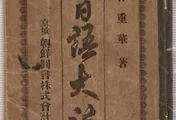 重華著
日語大
京城 朝鮮圖書株式會社